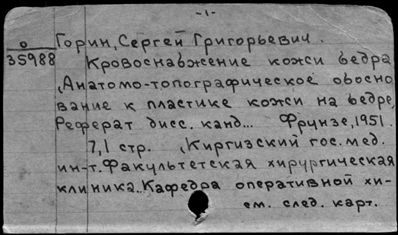 -1-
О
35988
Горин, Сергей Григорьевич.
Кровоснабжение кожи бедра
, Анатомо-топографическое обосно
вание к пластике кожи на бедре,
Реферат дисс. канд... Фрунзе, 1951.
7,1 стр. , Киргизский гос. мед.
ин-т. Факультетская хирургическая
клиника.. Кафедра оперативной хи-
см. след. карт.